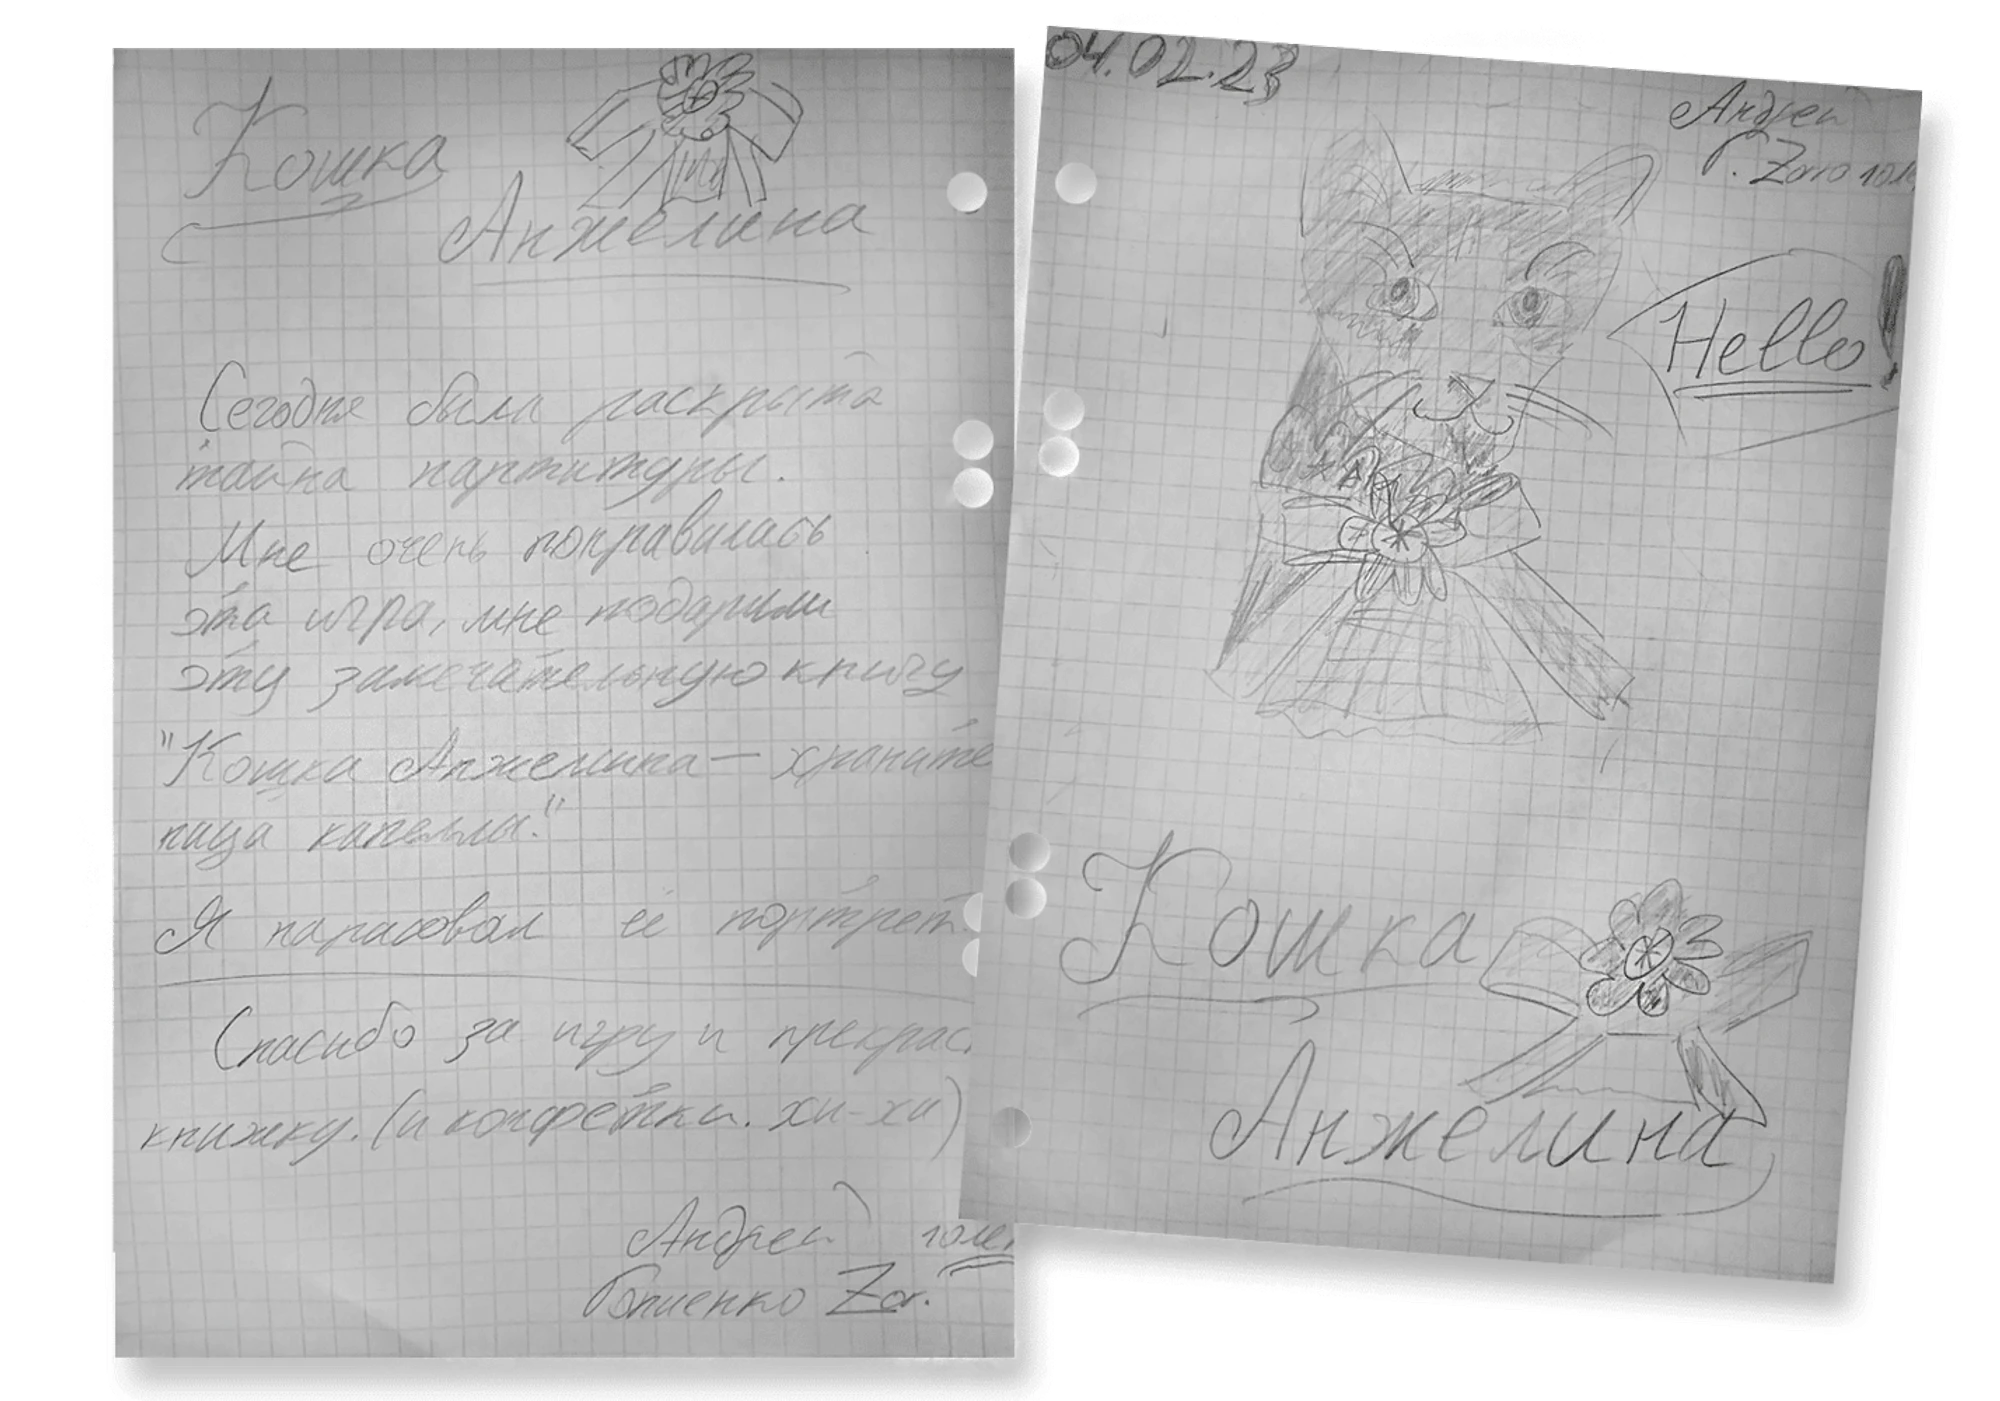 Кошка
Анжелина
Сегодня была раскрыта
тайна партитуры.
Мне очень понравилась
эта игра, мне подарили
эту замечательную книгу
"Кошка Анжелина — храните
ница капеллы."
Я нарисовал её портрет.
Спасибо за игру и прекрас.
книжку. (и конфетки. хи-хи)
Андрей 10 лет
Zor.
04.02.23
Андрей
Г. Zoro 10 ле
Hello!
Кошка
Анжелина